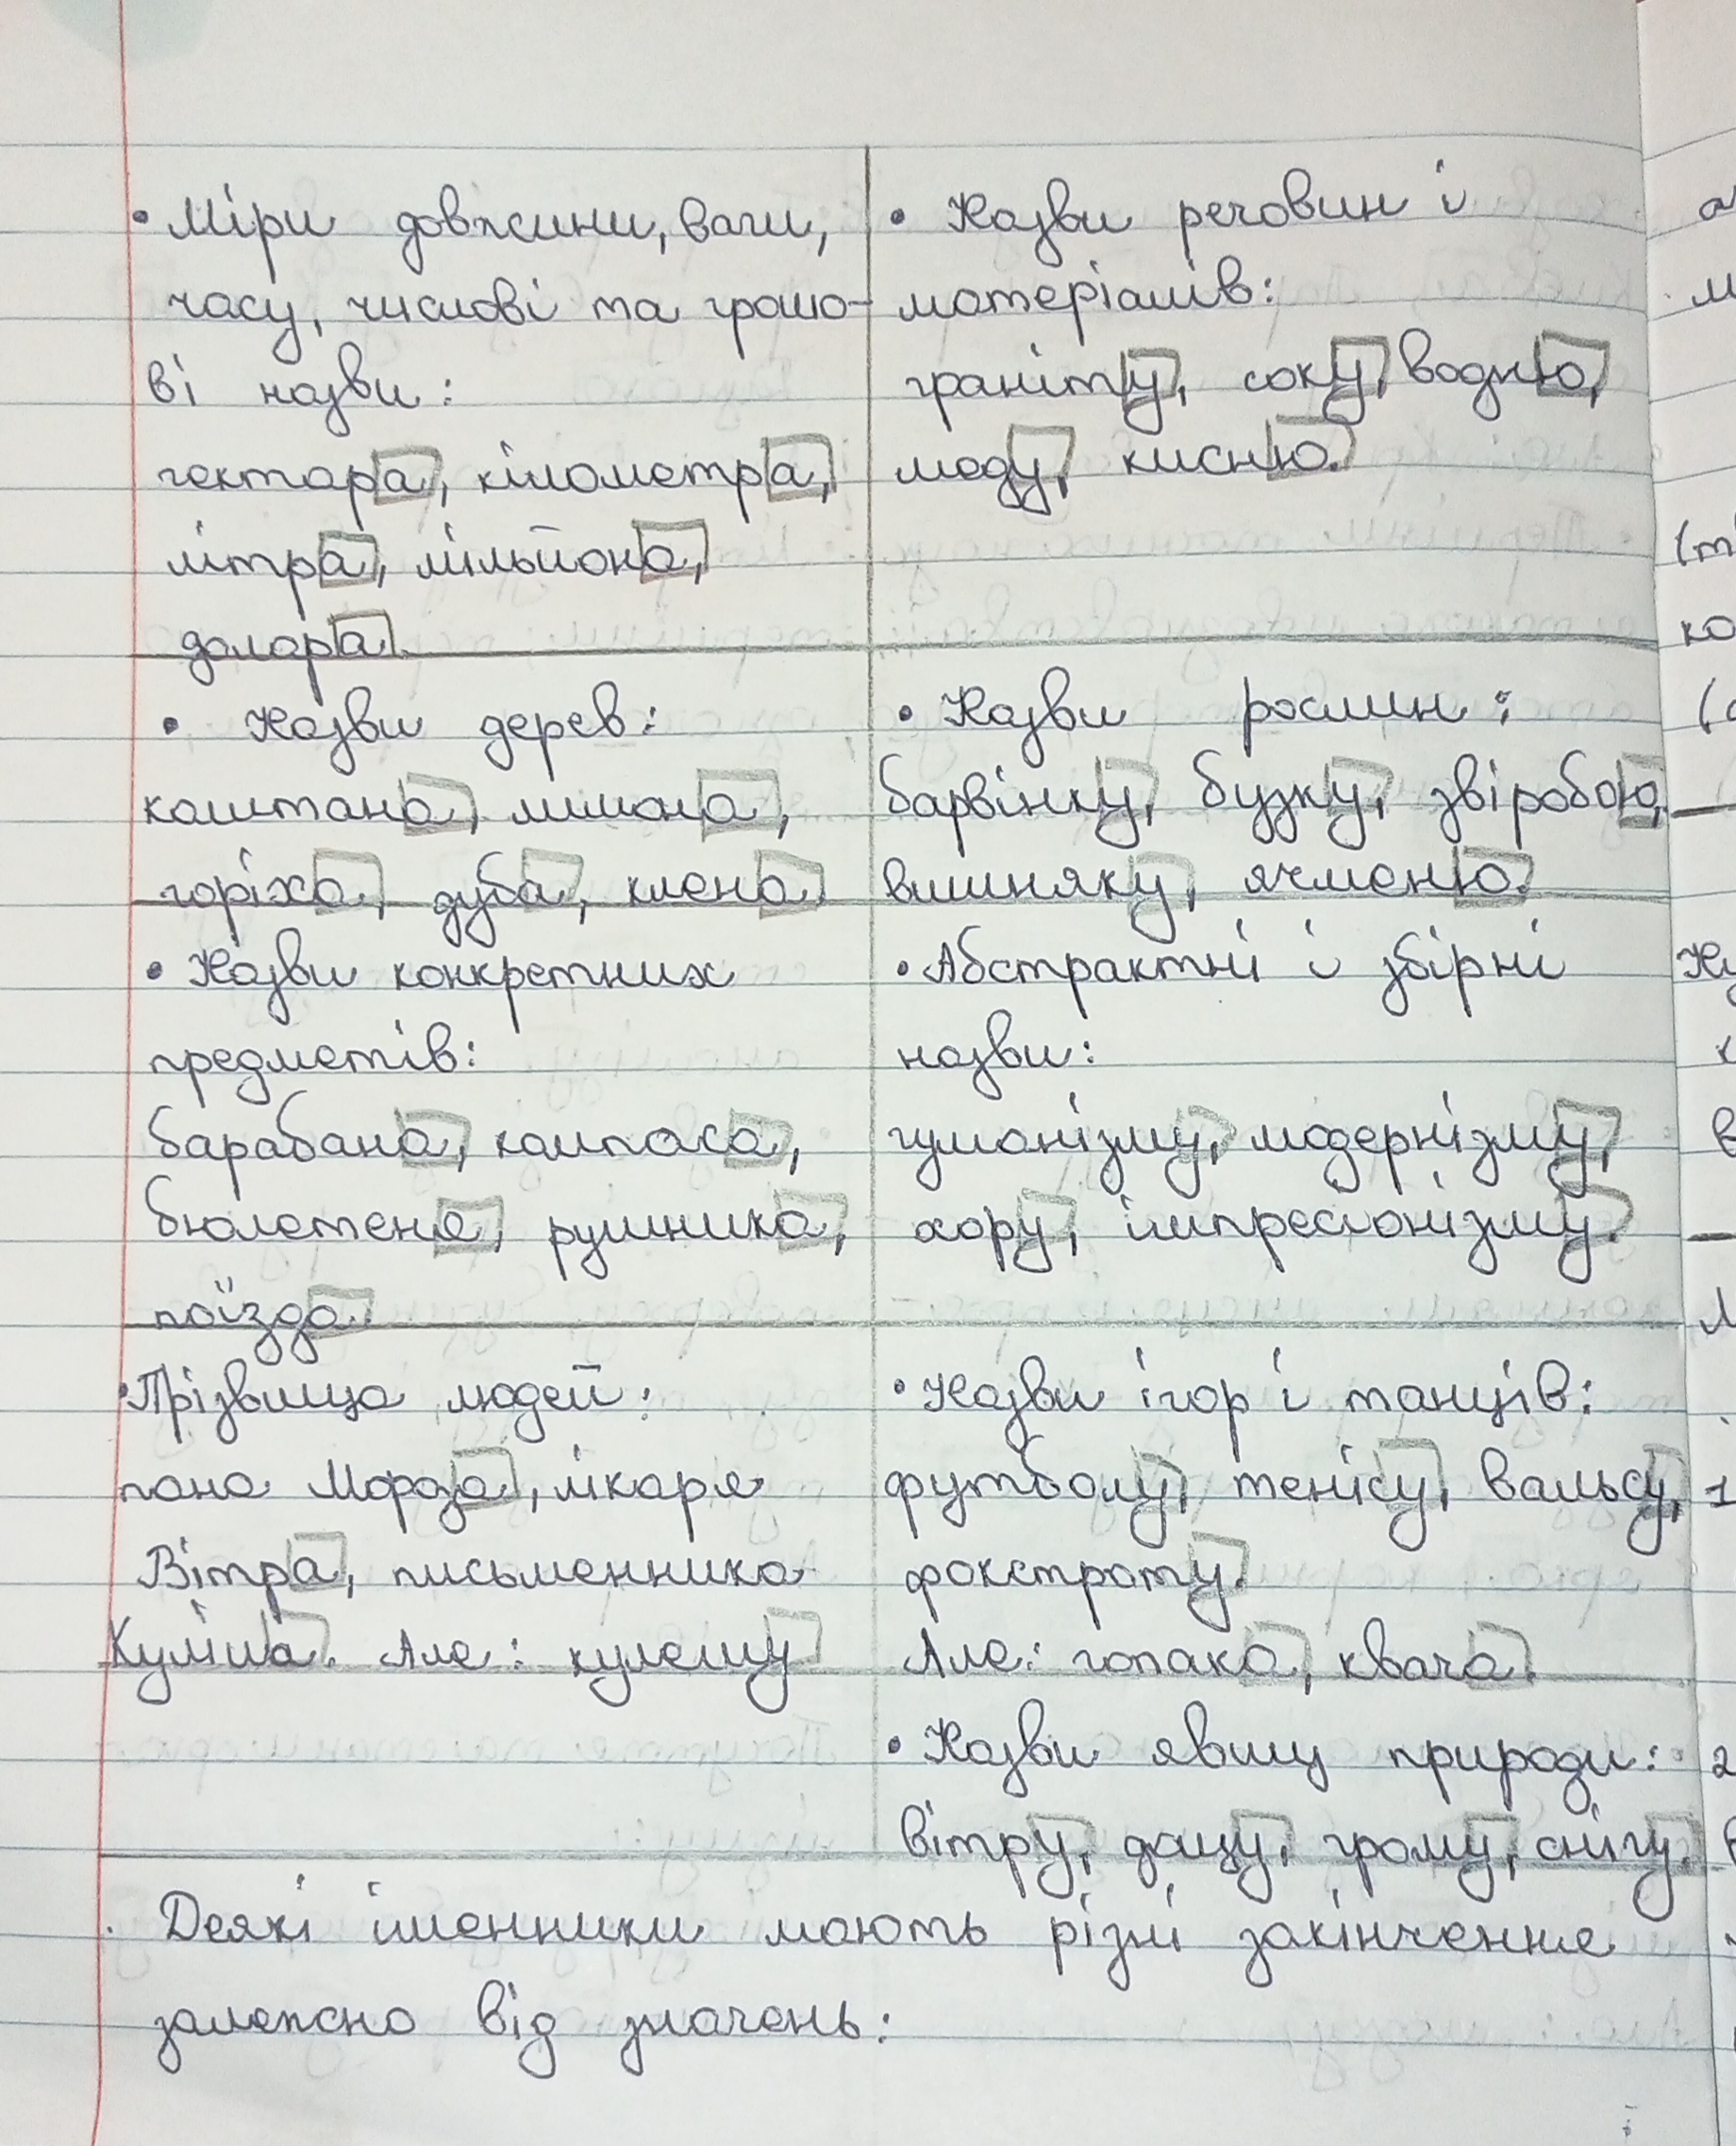 • Міри довжини, ваги,
часу, числові та грошо-
ві назви:
гектара, кілометра,
літра, мільйона,
долара.
• Назви речовин і
матеріалів:
граніту, соку, водню,
меду, кисню.
• Назви дерев:
каштана, лимона,
горіха, дуба, клена.
• Назви рослин:
барвінку, бузку, звіробою,
вишняку, ячменю.
• Назви конкретних
предметів:
барабана, компаса,
бюлетеня, рушника,
поїзда
• Абстрактні і збірні
назви:
гуманізму, модернізму,
хору, імпресіонізму.
• Прізвища людей:
пана Мороза, лікаря
Вітра, письменника
Куліша. Але: кулешу
• Назви ігор і танців:
футболу, тенісу, вальсу,
фокстроту.
Але: гопака, квача.
• Назви явищ природи:
вітру, дощу, грому, снігу.
Деякі іменники мають різні закінчення
залежно від значень: